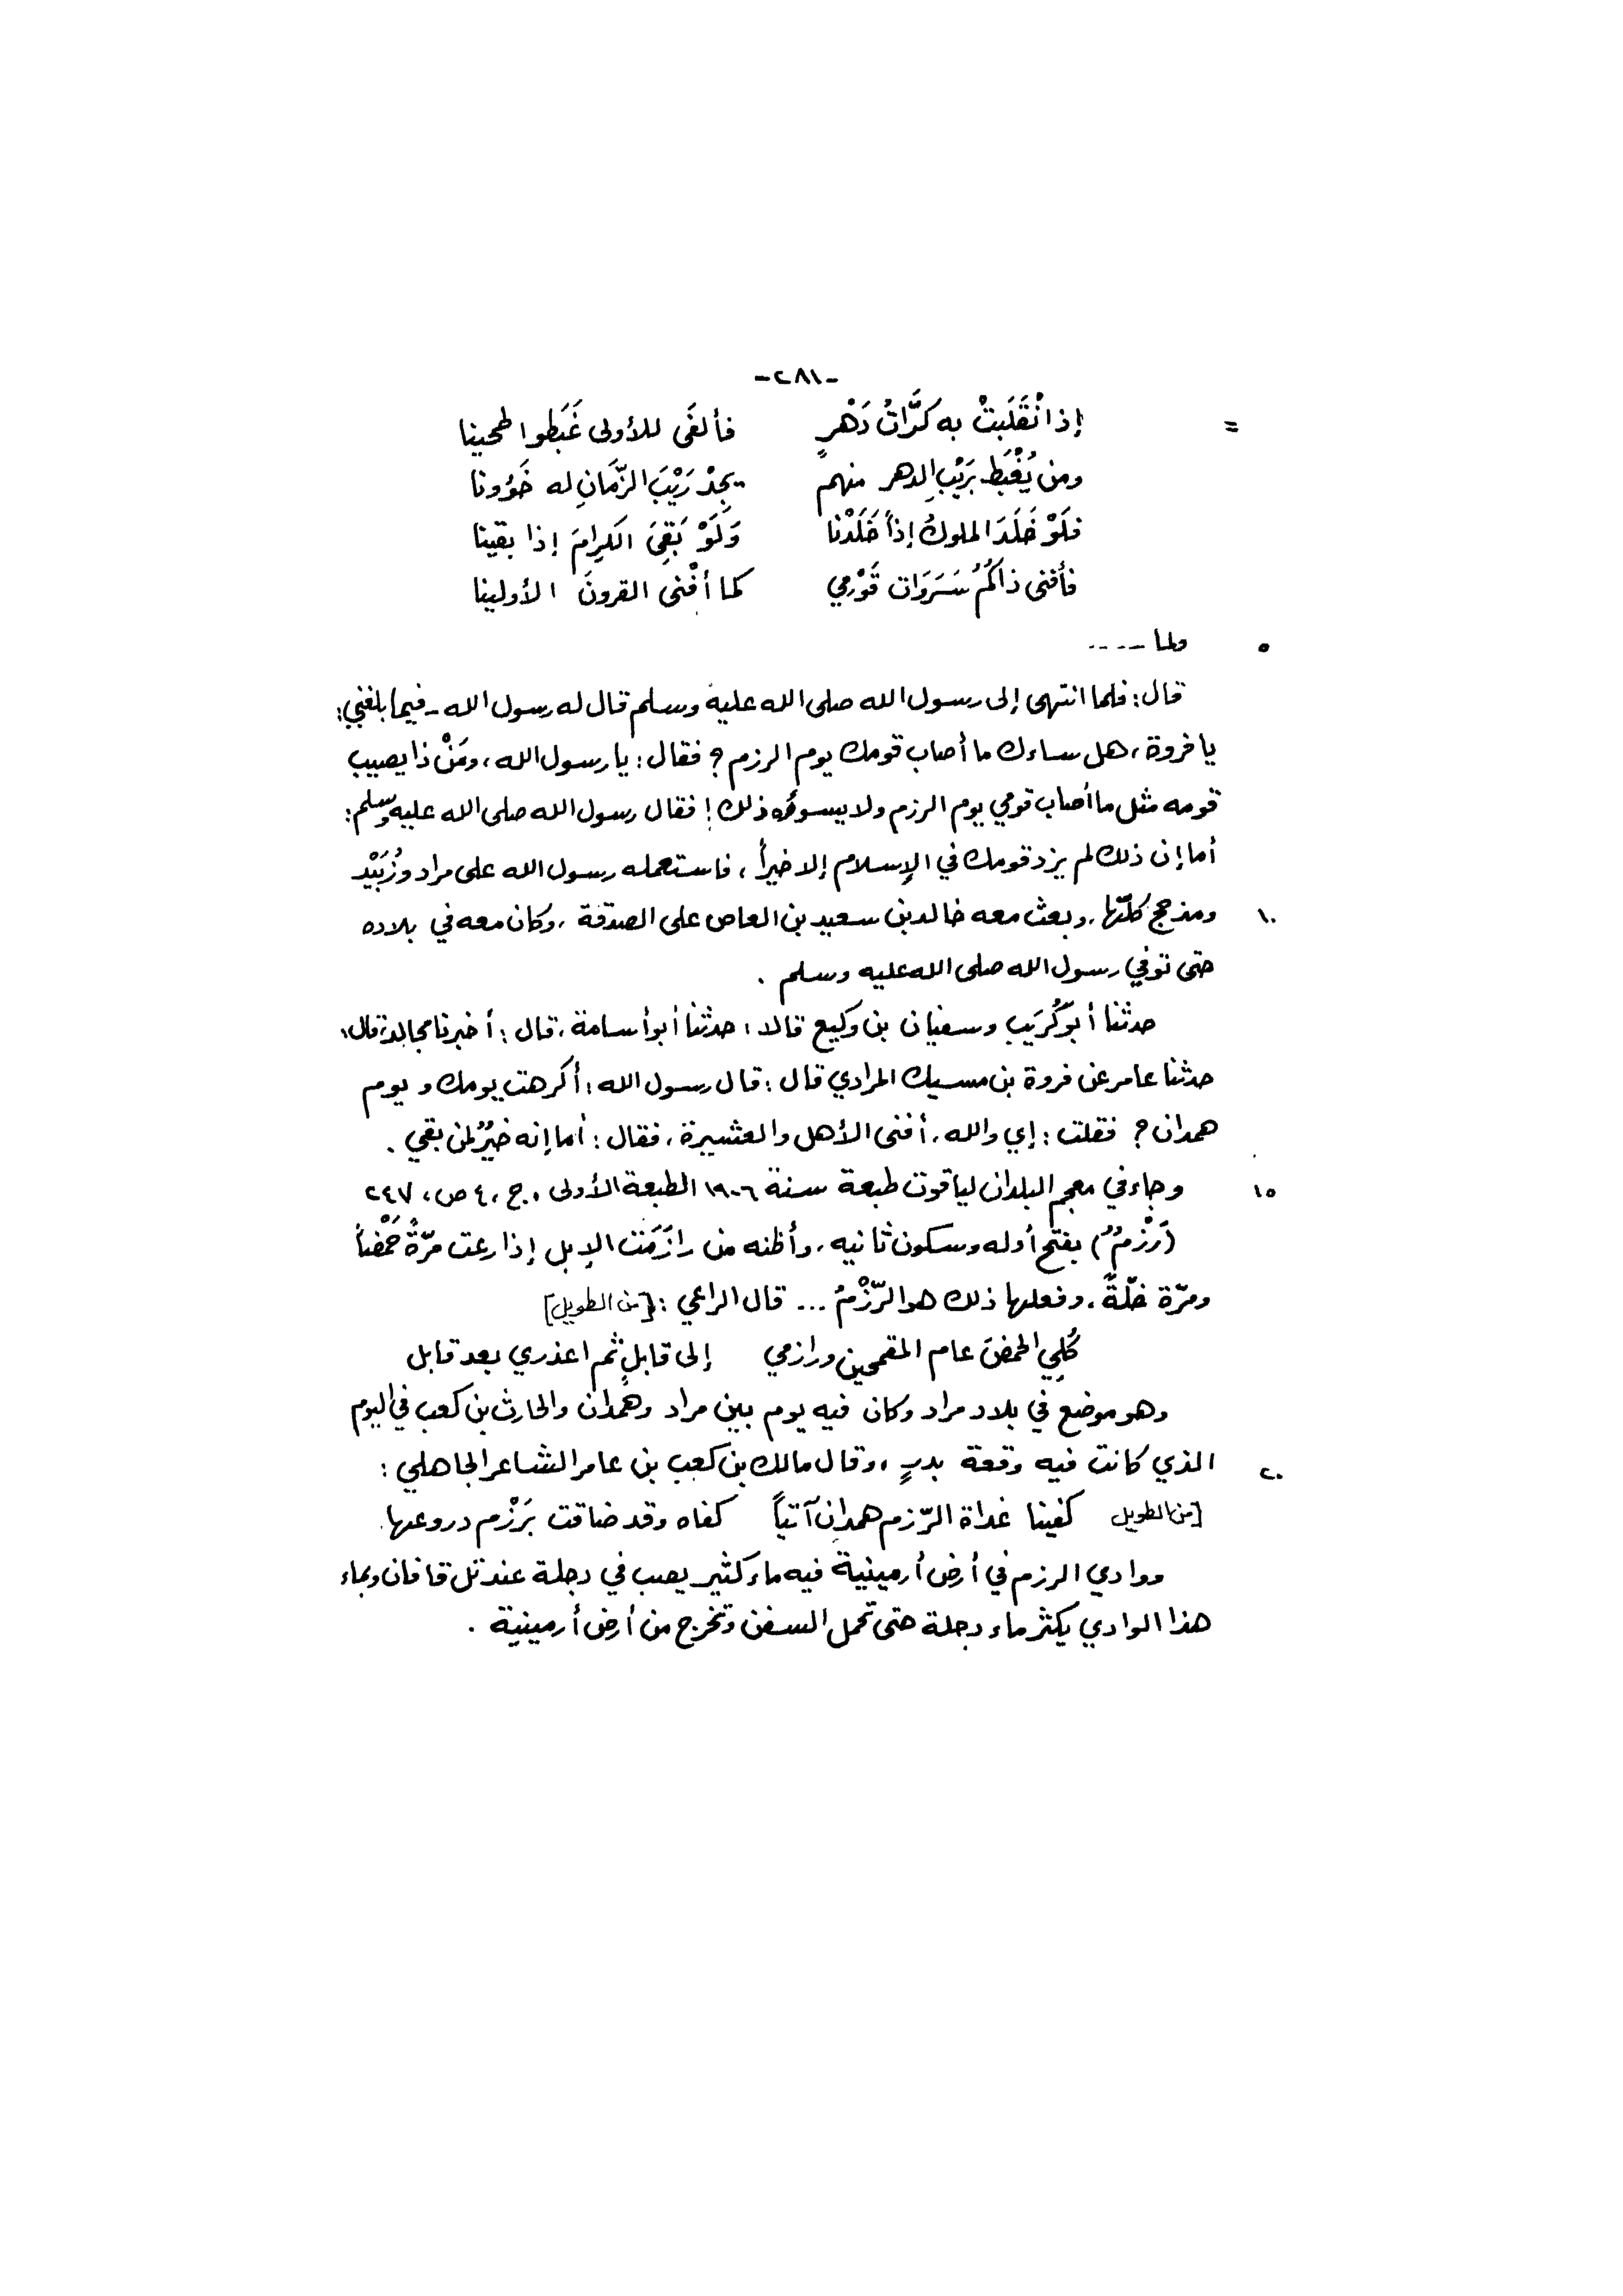 -٢٨١-
= إذا نْقَلَبَتْ به كَرَّاتُ دَهْرٍ فألفَى للأولى غَبَطوا طحينا
ومن يُغْبَط بَرَيْبِ الدهر منهم يجِدْ رَيْبَ الزَّمَانِ له خَؤونا
فلَوْ خَلَدَ الملوكُ إذاً خَلَدْنا وَلَوْ بَقِيَ الكِرامَ إذا بقينا
فأفنى ذاكُمُ سَرَوَات قَوْمي كما أفْنى القرونَ الأولينا
٥ ولما ----
قال: فلما انتهى إلى رسول الله صلى الله عليه وسلم قال له رسول الله - فيما بلغني:
يا فروة، هل ساءك ما أصاب قومك يوم الرزم؟ فقال: يا رسول الله، ومَنْ ذا يصيب
قومه مثل ما أصاب قومي يوم الرزم ولا يسوؤه ذلك! فقال رسول الله صلى الله عليه وسلم:
أما إن ذلك لم يزد قومك في الإسلام إلا خيراً، فاستعمله رسول الله على مراد وزُبَيْد
١٠ ومذحج كلّها، وبعث معه خالد بن سعيد بن العاص على الصدقة، وكان معه في بلاده
حتى توفي رسول الله صلى الله عليه وسلم .
حدثنا أبوكُرَيب وسفيان بن وكيع قالا: حدثنا أبو أسامة، قال: أخبرنا مجالد، قال:
حدثنا عامر عن فروة بن مسيك المرادي قال: قال رسول الله: أكرهت يومك و يوم
همدان؟ فقلت: إي والله، أفنى الأهل والعشيرة، فقال: أما إنه خيرٌ لمن بقي .
١٥ وجاء في معجم البلدان لياقوت طبعة سنة ١٩٠٦ الطبعة الأولى، ج، ٤ ص، ٢٤٧
(رَزْمُ) بفتح أوله وسكون ثانيه، وأظنه من رازَمَت الإبل إذا رعت مرّةً حَمْضاً
ومرّة خلّةً، وفعلها ذلك هو الرّزْمُ ... قال الراعي: [من الطويل]
كُلِي الحمضَ عام المقمحين ورازمي إلى قابلٍ ثم اعذري بعد قابل
وهو موضع في بلاد مراد وكان فيه يوم بين مراد وهَمْدان والحارث بن كعب في اليوم
٢٠ الذي كانت فيه وقعة بدرٍ، وقال مالك بن كعب بن عامر الشاعر الجاهلي:
[من الطويل كفينا غداة الرّزم همدان آتياً كفاه وقد ضاقت بَرَزْم دروعها
ووادي الرزم في أرض أرمينية فيه ماء كثير يصب في دجلة عند تل قافان وبماء
هذا الوادي يكثر ماء دجلة حتى تحمل السفن وتخرج من أرض أرمينية .